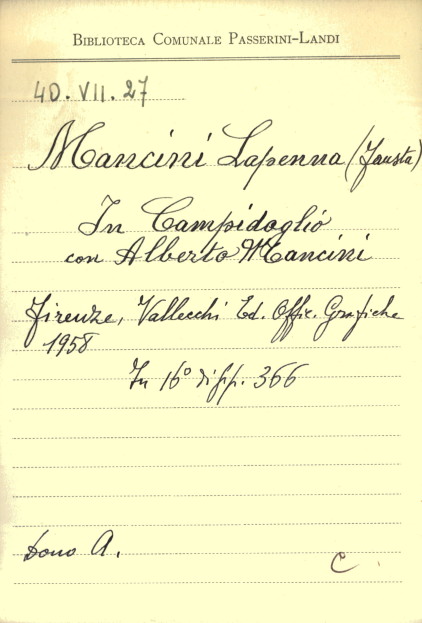 BIBLIOTECA COMUNALE PASSERINI-LANDI
40. VII. 27
Mancini Lapenna (Fausta)
In Campidoglio
con Alberto Mancini
Firenze, Vallecchi Ed. Offic. Grafiche
1958
In 16° di pp. 366
Dono A.
C